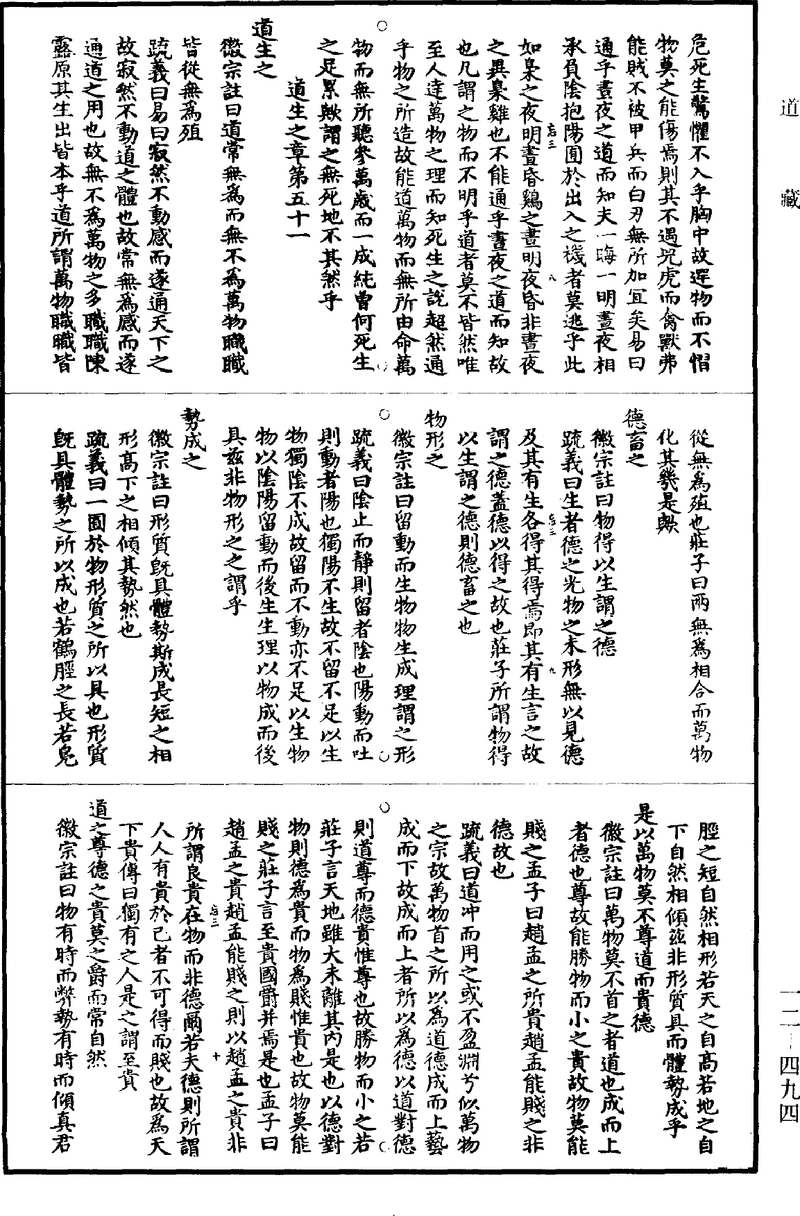 道藏
危死生驚懼不入乎胸中故遻物而不慴
物莫之能傷焉則其不遇兕虎而禽獸弗
能賊不被甲兵而白刃無所加宜矣易曰
通乎晝夜之道而知夫一晦一明晝夜相
承負陰抱陽囿於出入之機者莫逃乎此
如梟之夜明晝昏鷄之晝明夜昏非晝夜
之異梟雞也不能通乎晝夜之道而知故
也凡謂之物而不明乎道者莫不皆然唯
至人達萬物之理而知死生之說超然通
乎物之所造故能道萬物而無所由命萬
物而無所聽參萬歲而一成純曾何死生
之足累歟謂之無死地不其然乎
道生之章第五十一
道生之
徽宗註曰道常無為而無不為萬物職職
皆從無為殖
疏義曰易曰寂然不動感而遂通天下之
故寂然不動道之體也故常無為感而遂
通道之用也故無不為萬物之多職職陳
露原其生出皆本乎道所謂萬物職職皆
從無為殖也莊子曰兩無為相合而萬物
化其幾是歟
德畜之
徽宗註曰物得以生謂之德
疏義曰生者德之光物之未形無以見德
及其有生各得其得焉即其有生言之故
謂之德蓋德以得之故也莊子所謂物得
以生謂之德則德畜之也
物形之
徽宗註曰留動而生物物生成理謂之形
疏義曰陰止而靜則留者陰也陽動而吐
則動者陽也獨陽不生故不留不足以生
物獨陰不成故留而不動亦不足以生物
物以陰陽留動而後生生理以物成而後
具茲非物形之之謂乎
勢成之
徽宗註曰形質既具體勢斯成長短之相
形高下之相傾其勢然也
疏義曰一囿於物形質之所以具也形質
既具體勢之所以成也若鶴脛之長若鳧
脛之短自然相形若天之自高若地之自
下自然相傾茲非形質具而體勢成乎
是以萬物莫不尊道而貴德
徽宗註曰萬物莫不首之者道也成而上
者德也尊故能勝物而小之貴故物莫能
賤之孟子曰趙孟之所貴趙孟能賤之非
德故也
疏義曰道沖而用之或不盈淵兮似萬物
之宗故萬物首之所以為道德成而上藝
成而下故成而上者所以為德以道對德
則道尊而德貴惟尊也故勝物而小之若
莊子言天地雖大未離其內是也以德對
物則德為貴而物為賤惟貴也故物莫能
賤之莊子言至貴國爵并焉是也孟子曰
趙孟之貴趙孟能賤之則以趙孟之貴非
所謂良貴在物而非德爾若夫德則所謂
人人有貴於己者不可得而賤也故為天
下貴傳曰獨有之人是之謂至貴
道之尊德之貴莫之爵而常自然
徽宗註曰物有時而弊勢有時而傾真君
一二－四九四